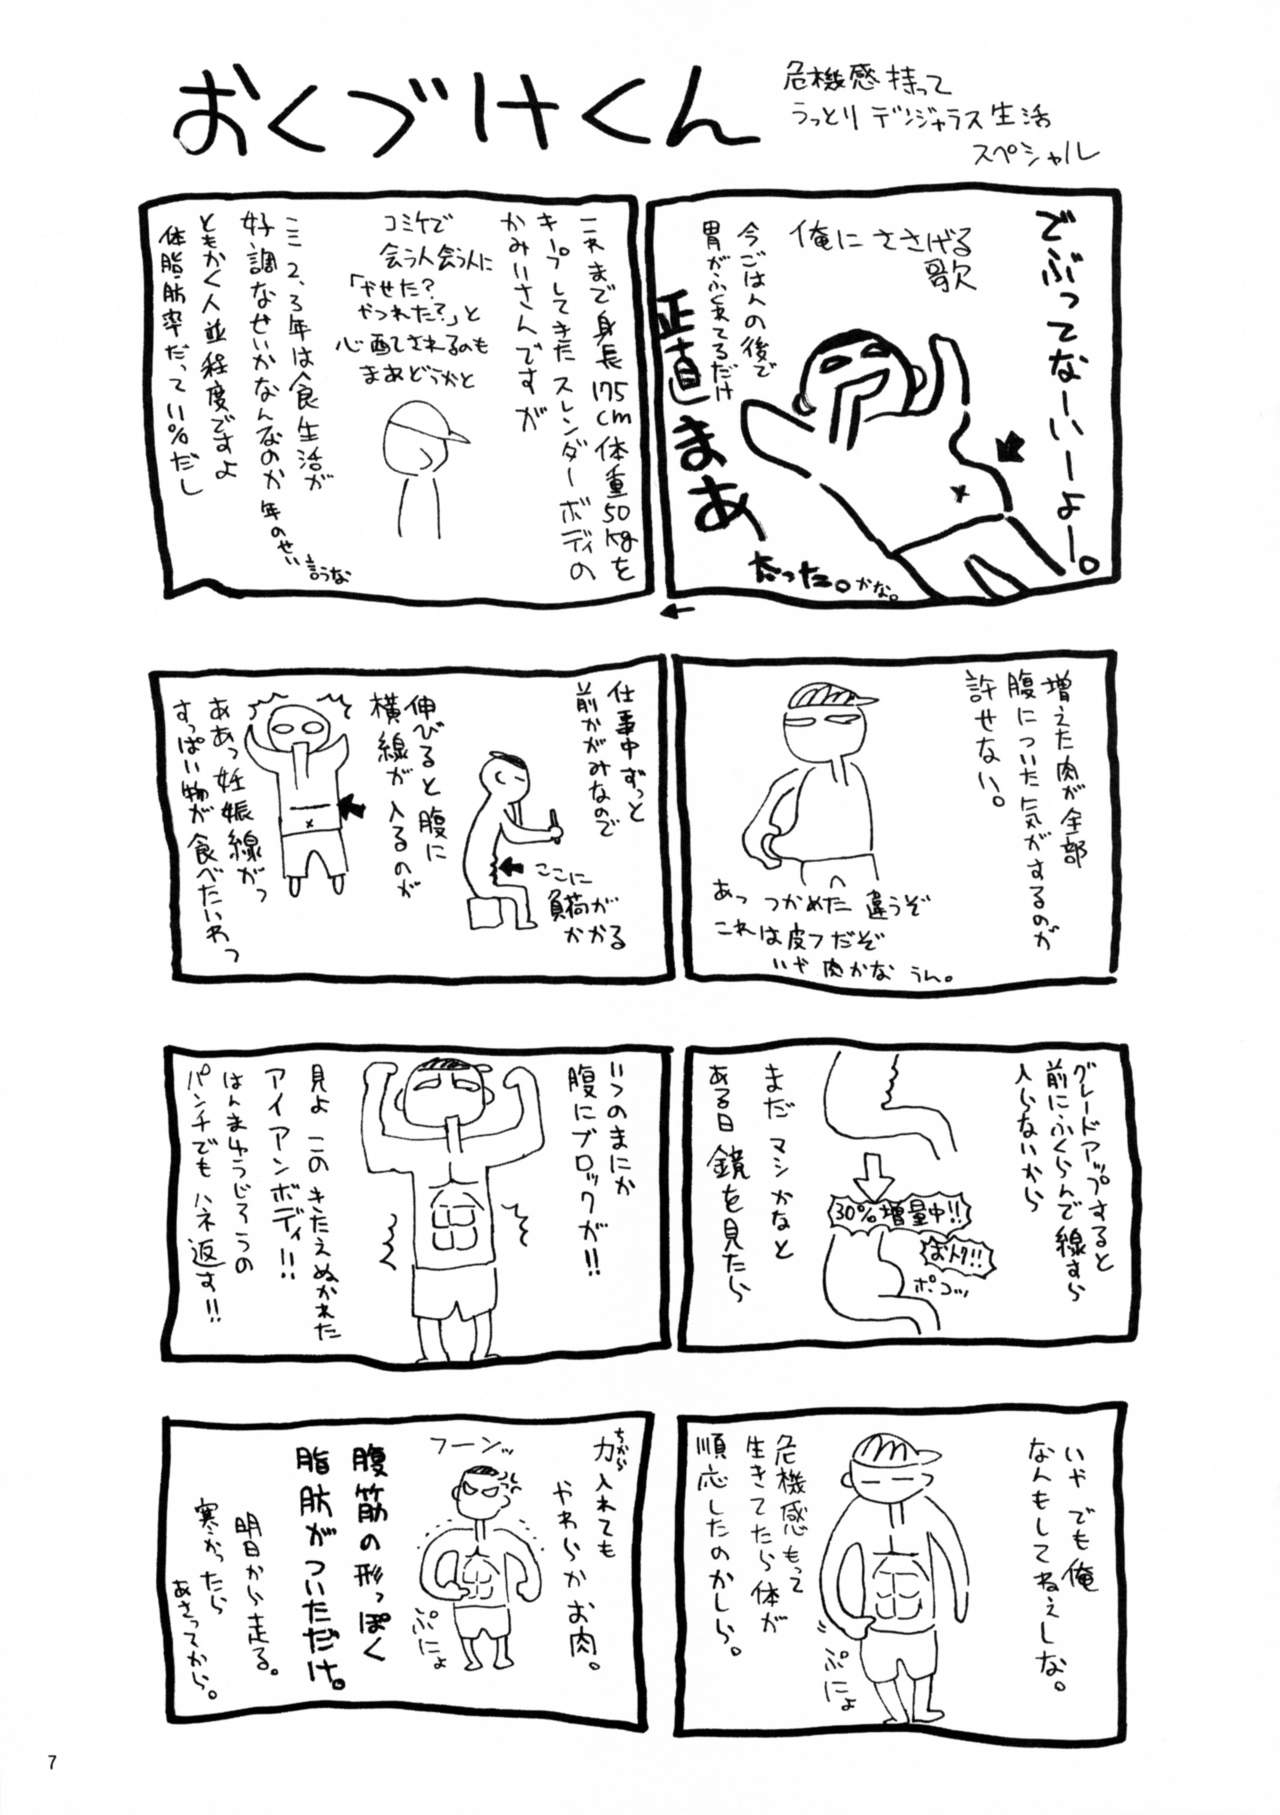 おくづけくん
危機感持って
うっとりデンジャラス生活
スペシャル
でぶってなーいーよー。
俺にささげる
歌
今ごはんの後で
胃がふくれてるだけ
正直まあ
だった。かな。
これまで身長175cm体重50kgを
キープしてきたスレンダーボディの
かみいさんですが
コミケで
会う人会う人に
「やせた?
やつれた?」と
心配されるのも
まあどうかと
ここ2、3年は食生活が
好調なせいかなんなのか年のせい
言うな
ともかく人並程度ですよ
体脂肪率だって11%だし
増えた肉が全部
腹についた気がするのが
許せない。
あっ つかめた 違うぞ
これは皮フだぞ
いや 肉かな うん。
仕事中ずっと
前かがみなので
ここに
負荷が
かかる
伸びると腹に
横線が入るのが
ああっ妊娠線がっ
すっぱい物が食べたいわっ
グレードアップすると
前にふくらんで線すら
入らないから
30%増量中!!
おトク!!
ポコッ
まだ マシかなと
ある日 鏡を見たら
いつのまにか
腹にブロックが!!
見よ このきたえぬかれた
アイアンボディ!!
はんまゆうじろうの
パンチでもハネ返す!!
いや でも俺
なんもしてねぇしな。
危機感もって
生きてたら体が
順応したのかしら。
ぷにょ
ちから
力入れても
やわらかお肉。
フーンッ
ぷにょ
腹筋の形っぽく
脂肪がついただけ。
明日から走る。
寒かったら
あさってから。
7